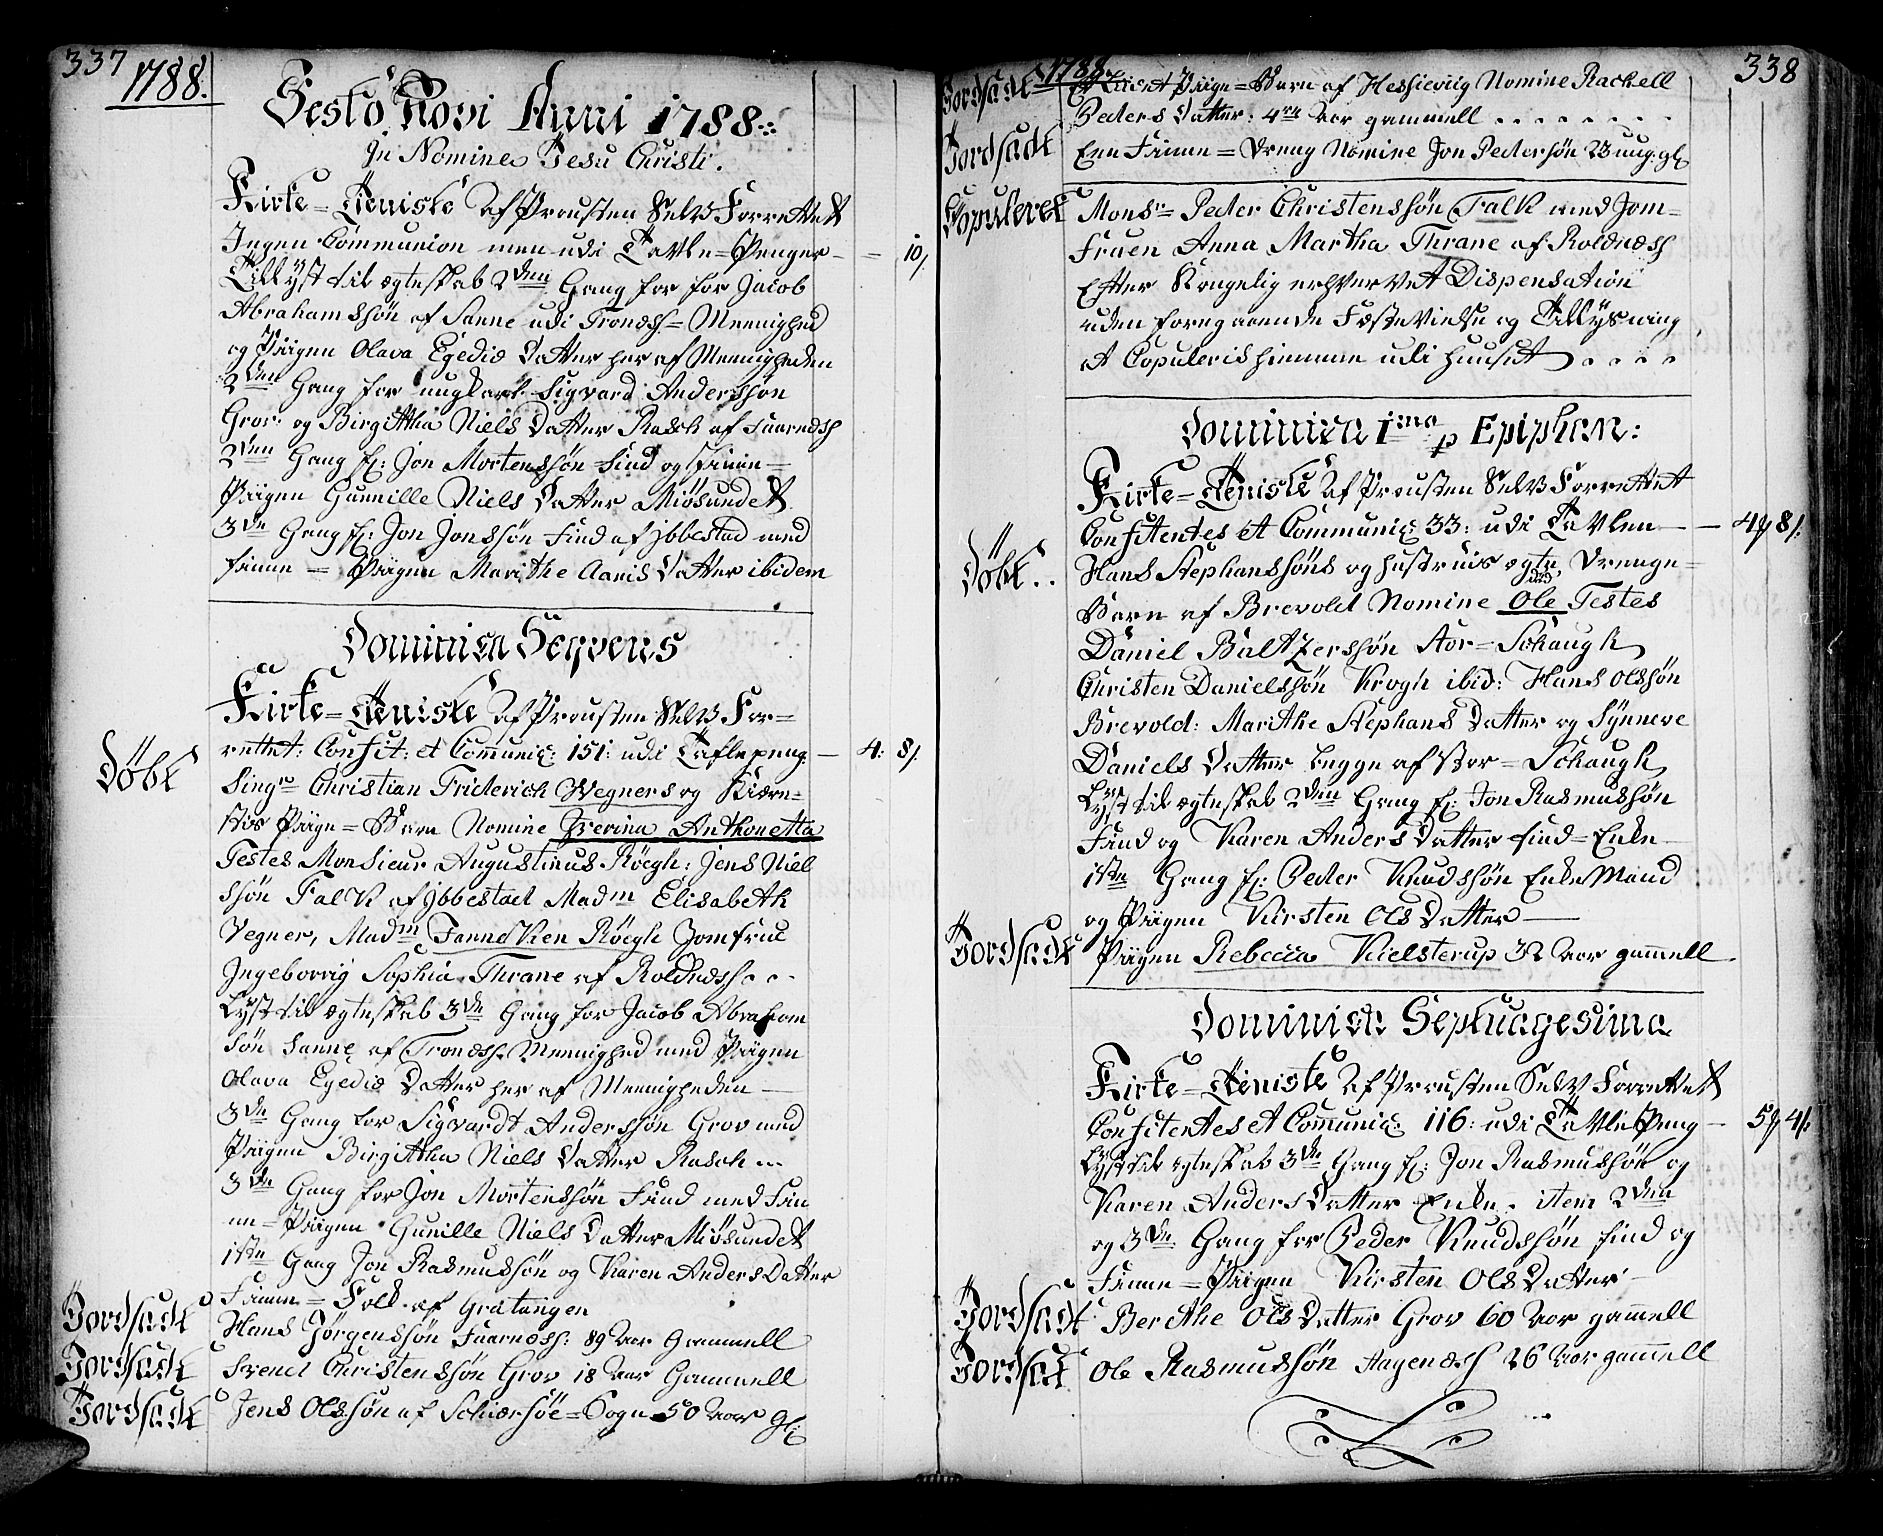 337
1788.
Festo Novi Anni 1788
In Nomine Jesu Christi.
Kirke-Tieniste af Prousten Selv Forrettet
Ingen Communion men udi Tavle-Penger - = 10/.
Tillyst til ægteskab 2den Gang for for Jacob
Abrahamssøn af Sanne udi Tronæss-Meenighed
og Piigen Olava Egediæ Datter her af Meenigheden
2den Gang for ungkarl Sigvard Anderssøn
Grov: og Birgittha Niels Datter Rasch af Faarnæss
2den Gang f: Jon Mortenssøn Find og Finne-
Piigen Gunnille Niels Datter Miösundet
3de Gang f: Jon Jonssøn Find af Jbbestad med
Finne-Piigen Marithe Aanis Datter ibidem
Dominica Seqvens
Kirke-Tieniste af Prousten Selv For-
rettet: Confit: et Com̄unic: 151: udi Taflepeng. - 4: 8/.
Döbt
Singr Christian Friderich Wegners og Kiære-
stes Piige-Barn Nomine Zeverina Anthonetta
Testes Monsieur Augustinus Röegh: Jens Niel
ssøn Falk af Jbbestad Madm Elisabeth
Vegner, Madm Fannevien Röegh Jomfrue
Ingeborrig Sophia Thrane af Roldnæss...
Lyst til ægteskab 3de Gang for Jacob Abraham
søn Sanne af Tronæss Meenighed med Piigen
Olava Egediæ Datter her af Meenigheden -
3de Gang for Sigvardt Anderssøn Grov med
Piigen Birgittha Niels Datter Rasch ...
3de Gang for Jon Mortenssøn Find med Fin
ne-Piigen Gunille Niels Datter Miösundet
1ste Gang Jon Rasmussøn og Karen Anders Datter
Finne-Folk af Gratangen
Jordfæstet Hans Jörgenssøn Faarnæss: 89 Aar Gammell
Jordfæstet Svend Christenssøn Grov 18 Aar Gammell
Jordfæstet Jens Olssøn af Schiærsöe-Sogn 50 Aar gl:
338
1788.
Jordfæstet Et Liidet Piige-Barn af Hessieviig Nomine Rachell
Peders Datter: 4re Aar gammell ........
Jordfæstet Een Finne-Dreng Nomine Jon Pedersøn 23 uug. gl
Copuleret Monsr Peder Christenssøn Falk med Jom-
Fruen Anna Martha Thrane af Roldnæss
Efter Kongelig erhvervet Dispensation
uden foregaaende Fæstevielse og Tillysning
at Copuleris hiemme udi Huuset ....
Dominica 1ma p Epiphan:
Kirke-Tieniste af Prousten Selv Forrettet
Confitentes et Communic: 33: udi Tavlen - - 4 8/.
Döbt.. Hans Stephanssøns og Hustruis ægte Drenge-
Barn af Brevold Nomine Ole Testes
Daniel Baltzerssøn Stor-Schaugh
Christen Danielssøn Krogh ibid: Hans Olssøn
Brevold: Marithe Stephans Datter og Synneve
Daniels Datter begge af Stor-Schaugh
Lyst til ægteskab 2den Gang f: Jon Rasmussøn
Find og Karen Anders Datter Find-Enke
1ste Gang f: Peder Knudssøn Enke Mand
og Piigen Kirsten Ols Datter -
Jordfæstet Piigen Rebecca Kielsterup 32 Aar gam̄ell.
Dominica Septuagesima
Kirke-Tieniste af Prousten Selv Forrettet
Confitentes et Com̄unic: 116: udi Tavle Peng - 5 4/.
Lyst til ægteskab 3de Gang f: Jon Rasmussøn og
Karen Anders Datter Enke. item 2den
og 3de Gang for Peder Knudssøn Find og
Finne-Piigen Kirsten Ols Datter -
Jordfæstet Berithe Ols Datter Grov 60 Aar gam̄ell
Jordfæstet Ole Rasmussøn Hagenæss 26 Aar gam̄ell